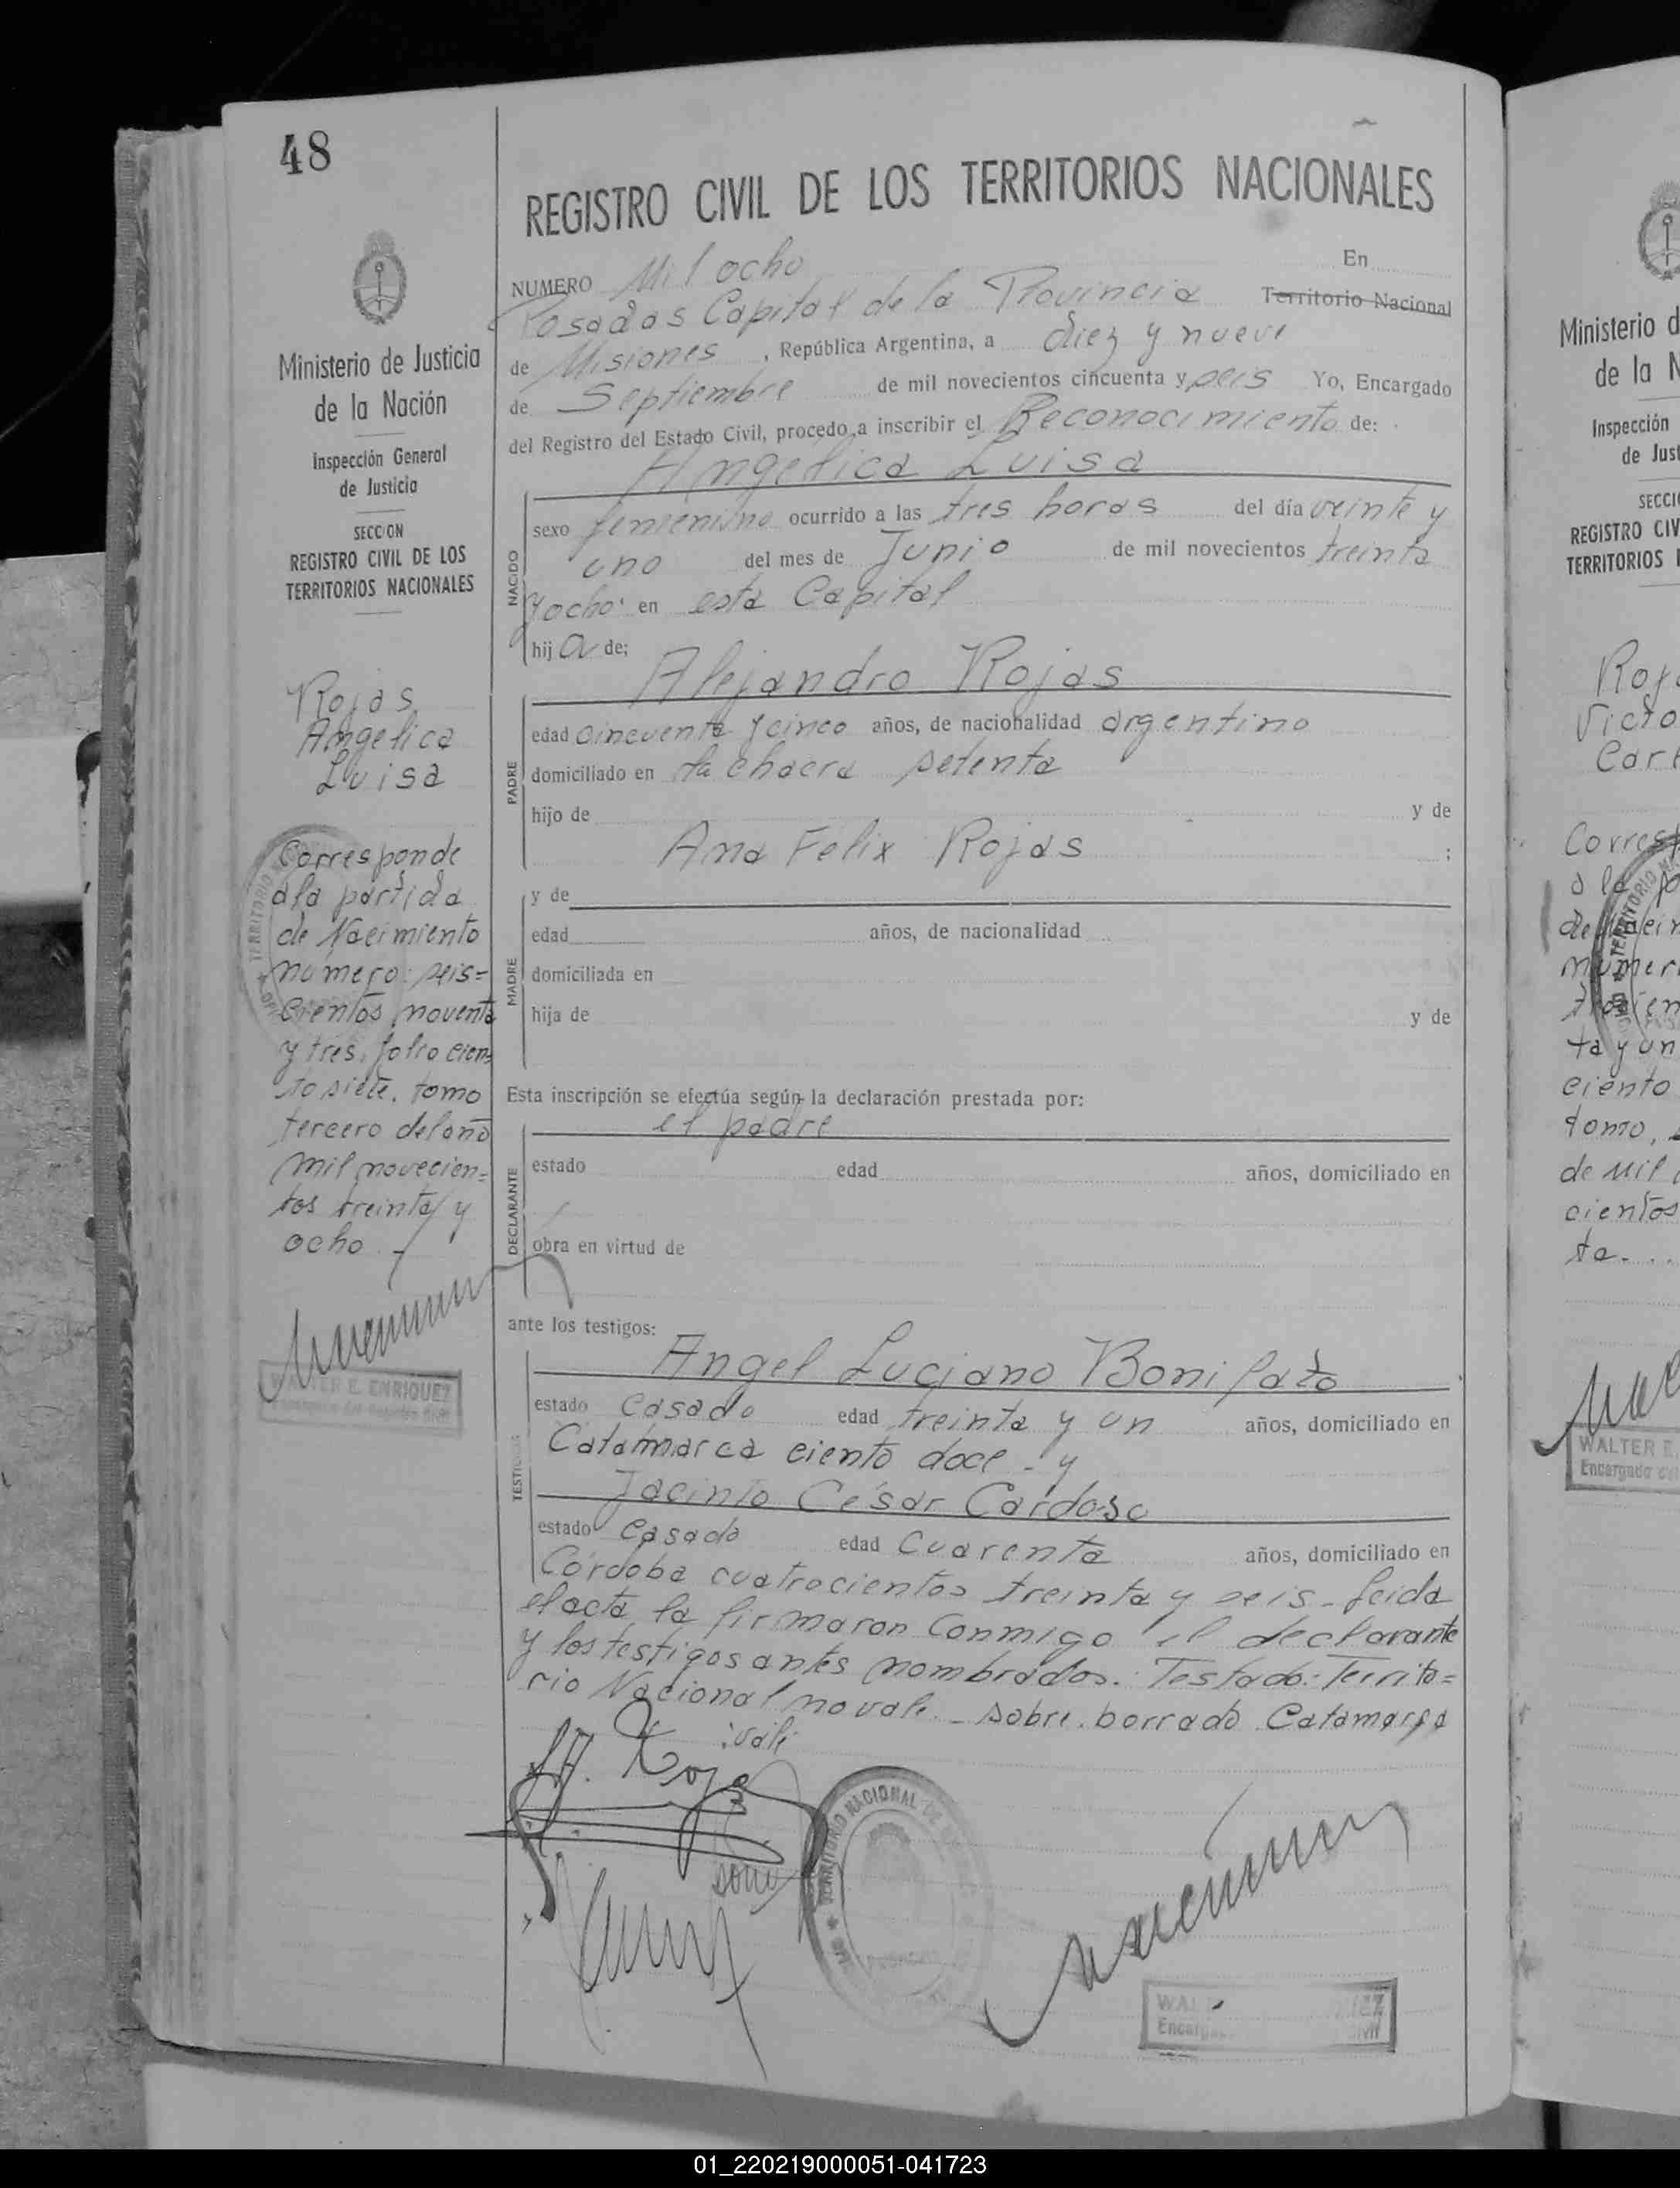 48
REGISTRO CIVIL DE LOS TERRITORIOS NACIONALES
NUMERO Mil ocho En
Posadas Capital de la Provincia Territorio Nacional
de Misiones, República Argentina, a diez y nueve
de Septiembre de mil novecientos cincuenta y seis Yo, Encargado
del Registro del Estado Civil, procedo a inscribir el Reconocimiento de:
Angélica Luisa
NACIDO
sexo femenino ocurrido a las tres horas del día veinte y
uno del mes de Junio de mil novecientos treinta
y ocho en esta Capital
hija de;
Alejandro Rojas
PADRE
edad cincuenta y cinco años, de nacionalidad argentino
domiciliado en la chacra setenta
hijo de y de
Ana Felix Rojas ;
MADRE
y de
edad años, de nacionalidad
domiciliada en
hija de y de
Esta inscripción se efectúa según la declaración prestada por:
el padre
DECLARANTE
estado edad años, domiciliado en
obra en virtud de
ante los testigos:
Angel Luciano Bonifato
TESTIGOS
estado casado edad treinta y un años, domiciliado en
Catamarca ciento doce - y
Jacinto César Cardoso
estado casado edad cuarenta años, domiciliado en
Córdoba cuatrocientos treinta y seis - leida
el acta la firmaron conmigo el declarante
y los testigos antes nombrados. Testado: Territo=
rio Nacional no vale - sobre borrado Catamarca
: vale
A. Rojas
TERRITORIO NACIONAL DE
Encarg
Ministerio de Justicia
de la Nación
Inspección General
de Justicia
SECCION
REGISTRO CIVIL DE LOS
TERRITORIOS NACIONALES
Rojas
Angélica
Luisa
Corresponde
a la partida
de Nacimiento
número: seis=
cientos noventa
y tres, folio cien
to siete, tomo
tercero del año
mil novecien=
tos treinta y
ocho -
TERRITORIO
WALTER E. ENRIQUEZ
Encargado del Registro Civil
Ministerio d
de la N
Inspección
de Just
SECCI
REGISTRO CIV
TERRITORIOS
Roja
Victo
Corres
a la pa
mumer
ta y un
ciento
tomo,
de mil
cientos
ta. . .
TERRITORIO
WALTER E.
Encargado de
01_220219000051-041723